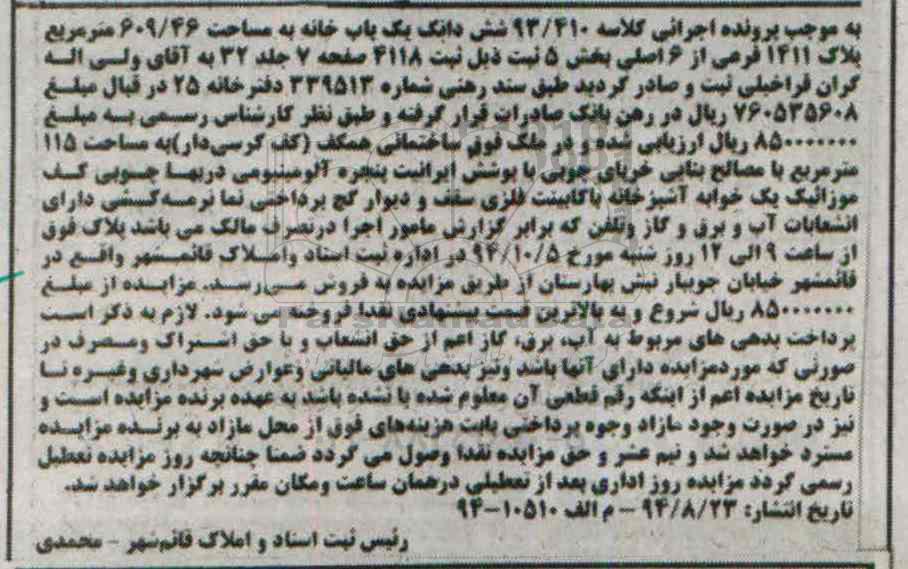 به موجب پرونده اجرائی کلاسه ۹۳/۴۱۰ شش دانگ یک باب خانه به مساحت ۶۰۹/۴۶ مترمربع
پلاک ۱۴۱۱ فرعی از ۶ اصلی بخش ۵ ثبت ذیل ثبت ۴۱۱۸ صفحه ۷ جلد ۳۲ به آقای ولی اله
گران فراخیلی ثبت و صادر گردید طبق سند رهنی شماره ۳۳۹۵۱۳ دفترخانه ۲۵ در قبال مبلغ
۷۶۰۵۳۵۶۰۸ ریال در رهن بانک صادرات قرار گرفته و طبق نظر کارشناس رسمی به مبلغ
۸۵۰۰۰۰۰۰۰ ریال ارزیابی شده و در ملک فوق ساختمانی همکف (کف کرسی‌دار)به مساحت ۱۱۵
مترمربع با مصالح بنایی خرپای چوبی با پوشش ایرانیت پنجره آلومینیومی دربها چوبی کف
موزائیک یک خوابه آشپزخانه باکابینت فلزی سقف و دیوار گچ پرداختی نما نرمه‌کشی دارای
انشعابات آب و برق و گاز وتلفن که برابر گزارش مامور اجرا درتصرف مالک می باشد پلاک فوق
از ساعت ۹ الی ۱۲ روز شنبه مورخ ۹۴/۱۰/۵ در اداره ثبت اسناد واملاک قائمشهر واقع در
قائمشهر خیابان جویبار نبش بهارستان از طریق مزایده به فروش می‌رسد. مزایده از مبلغ
۸۵۰۰۰۰۰۰۰ ریال شروع و به بالاترین قیمت پیشنهادی نقدا فروخته می شود. لازم به ذکر است
پرداخت بدهی های مربوط به آب، برق، گاز اعم از حق انشعاب و یا حق اشتراک ومصرف در
صورتی که موردمزایده دارای آنها باشد ونیز بدهی های مالیاتی وعوارض شهرداری وغیره تا
تاریخ مزایده اعم از اینکه رقم قطعی آن معلوم شده یا نشده باشد به عهده برنده مزایده است و
نیز در صورت وجود مازاد وجوه پرداختی بابت هزینه‌های فوق از محل مازاد به برنده مزایده
مسترد خواهد شد و نیم عشر و حق مزایده نقدا وصول می گردد ضمنا چنانچه روز مزایده تعطیل
رسمی گردد مزایده روز اداری بعد از تعطیلی درهمان ساعت ومکان مقرر برگزار خواهد شد.
تاریخ انتشار: ۹۴/۸/۲۳ - م الف ۱۰۵۱۰-۹۴
رئیس ثبت اسناد و املاک قائم‌شهر - محمدی